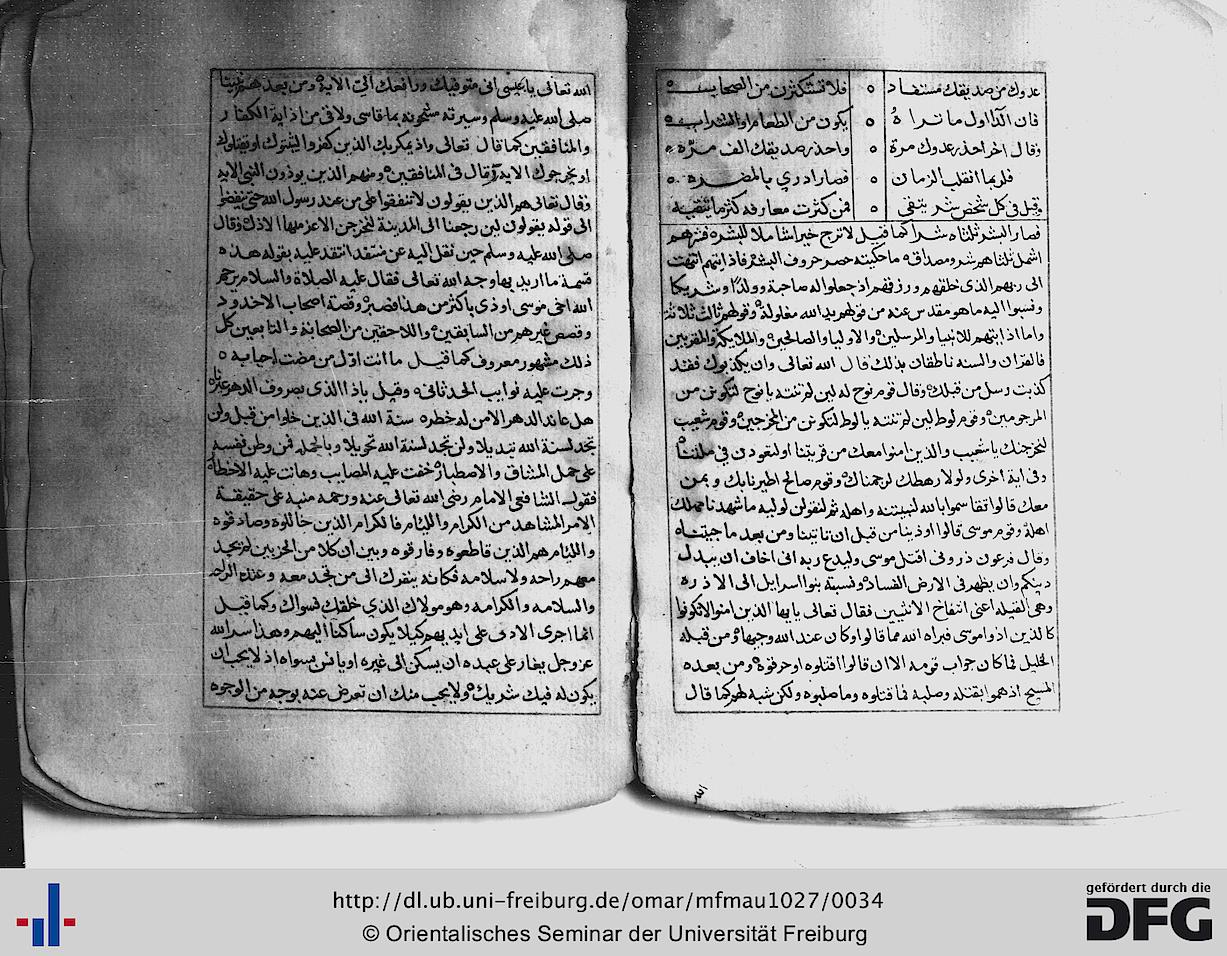 عدوك من صديقك مستفاد ه فلا تستكثرن من الصحاب ه
فان الداء اول ما تراه ه يكون من الطعام او الشراب ه
وقال اخر احذر عدوك مرة ه واحذر صديقك الف مره ه
فلربما انقلب الزمان ه فصار ادري بالمضره ه
وقيل في كل شخص شر يتقى ه فمن كثرت معارفه كثر ما يتقيه
فصار البشر ثلثاه شرا كما قيل لا ترج خيرا شاملا للبشر
اشمل ثلثاهم شر ومصداقه ما حكيته حصر حروف البشر فاذايتهم انتهت
الى ربهم الذي خلقهم ورزقهم اذ جعلوا له صاحبة وولدا وشريكا
ونسبوا اليه ما هو مقدس عنه من قولهم يد الله مغلولة وقولهم ثالث ثلاثة
واما اذايتهم للانبيا والمرسلين والاوليا والصالحين والملايكة والمقربين
فالقران والسنه ناطقان بذلك قال الله تعالى وان يكذبوك فقد
كذبت رسل من قبلك وقال قوم نوح له لين لم تنته يا نوح لتكونن من
المرجومين وقوم لوط لين لم تنته يا لوط لتكونن من المخرجين وقوم شعيب
لنخرجنك يا شعيب والذين امنوا معك من قريتنا او لتعودن في ملتنا
وفي اية اخرى ولولا رهطك لرجمناك وقوم صالح اطيرنا بك وبمن
معك قالوا تقاسموا بالله لنبيتنه واهله ثم لنقولن لوليه ما شهدنا مهلك
اهله وقوم موسى قالوا اوذينا من قبل ان تاتينا ومن بعد ما جيتنا
وقال فرعون ذروني اقتل موسى وليدع ربه اني اخاف ان يبدل
دينكم وان يظهر في الارض الفساد ونسبته بنوا اسرايل الى الاذره
وهي القيله اعنى انتفاخ الانثيين فقال تعالى يا يها الذين امنوا لا تكونوا
كالذين اذوا موسى فبراه الله مما قالوا وكان عند الله وجيها ومن قبله
الخليل فما كان جواب قومه الا ان قالوا اقتلوه او حرقوه ومن بعده
المسيح اذ هموا بقتله وصلبه فما قتلوه وما صلبوه ولكن شبه لهم كما قال
الله
الله تعالى يا عيسى اني متوفيك ورافعك الي الاية ومن بعدهم نبينا
صلى الله عليه وسلم وسيرته مشحونه بما قاسى ولاقى من اذاية الكفار
والمنافقين كما قال تعالى واذ يمكر بك الذين كفروا ليثبتوك او يقتلوك
او يخرجوك الاية وقال في المنافقين ومنهم الذين يوذون النبي الاية
وقال تعالى هم الذين يقولون لا تنفقوا على من عند رسول الله حتى ينفضوا
الى قوله يقولون لين رجعنا الى المدينة لنخرجن الاعز منها الاذل وقال
صلى الله عليه وسلم حين نقل اليه عن منتقد انتقد عليه بقوله هذه
قسمة ما اريد بها وجه الله تعالى فقال عليه الصلاة والسلام يرحم
الله اخي موسى اوذي باكثر من هذا فصبر وقصة اصحاب الاخدود
وقصص غيرهم من السابقين واللاحقين من الصحابة والتابعين كل
ذلك مشهور معروف كما قيل ما انت اول من مضت احبابه ه
وجرت عليه نوايب الحدثان وقيل يا ذا الذي بصروف الدهر عيرنا
هل عاند الدهر الا من له خطره سنة الله في الذين خلوا من قبل ولن
تجد لسنة الله تبديلا ولن تجد لسنة الله تحويلا وبالجملة فمن وطن نفسه
على حمل المشاق والاصطبار خفت عليه المصايب وهانت عليه الاخطار
فقول الشافعي الامام رضي الله تعالى عنه ورحمه منبه على حقيقة
الامر المشاهد من الكرام والليام فالكرام الذين خاللوه وصادقوه
والليام هم الذين قاطعوه وفارقوه وبين ان كلا من الحزبين لم يجد
معهم راحه ولا سلامه فكانه يقول الى من تجد معه وعنده الراحه
والسلامه والكرامه وهو مولاك الذي خلقك فسواك وكما قيل
انما اجرى الاذى على ايديهم كيلا يكون ساكنا اليهم وهذا سر الله
عز وجل يغار على عبده ان يسكن الى غيره او يانس بسواه اذ لا يحب ان
يكون له فيك شريك ولا يحب منك ان تعرض عنه بوجه من الوجوه
http://dl.ub.uni-freiburg.de/omar/mfmau1027/0034
© Orientalisches Seminar der Universität Freiburg
gefördert durch die
DFG